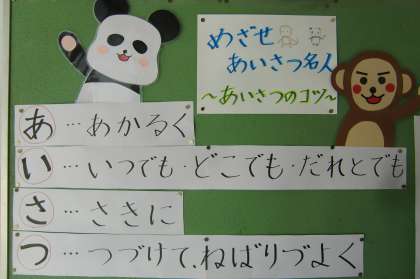 めざせ
あいさつ名人
～あいさつのコツ～
あ…あかるく
い…いつでも・どこでも・だれとでも
さ…さきに
つ…つづけて、ねばりづよく